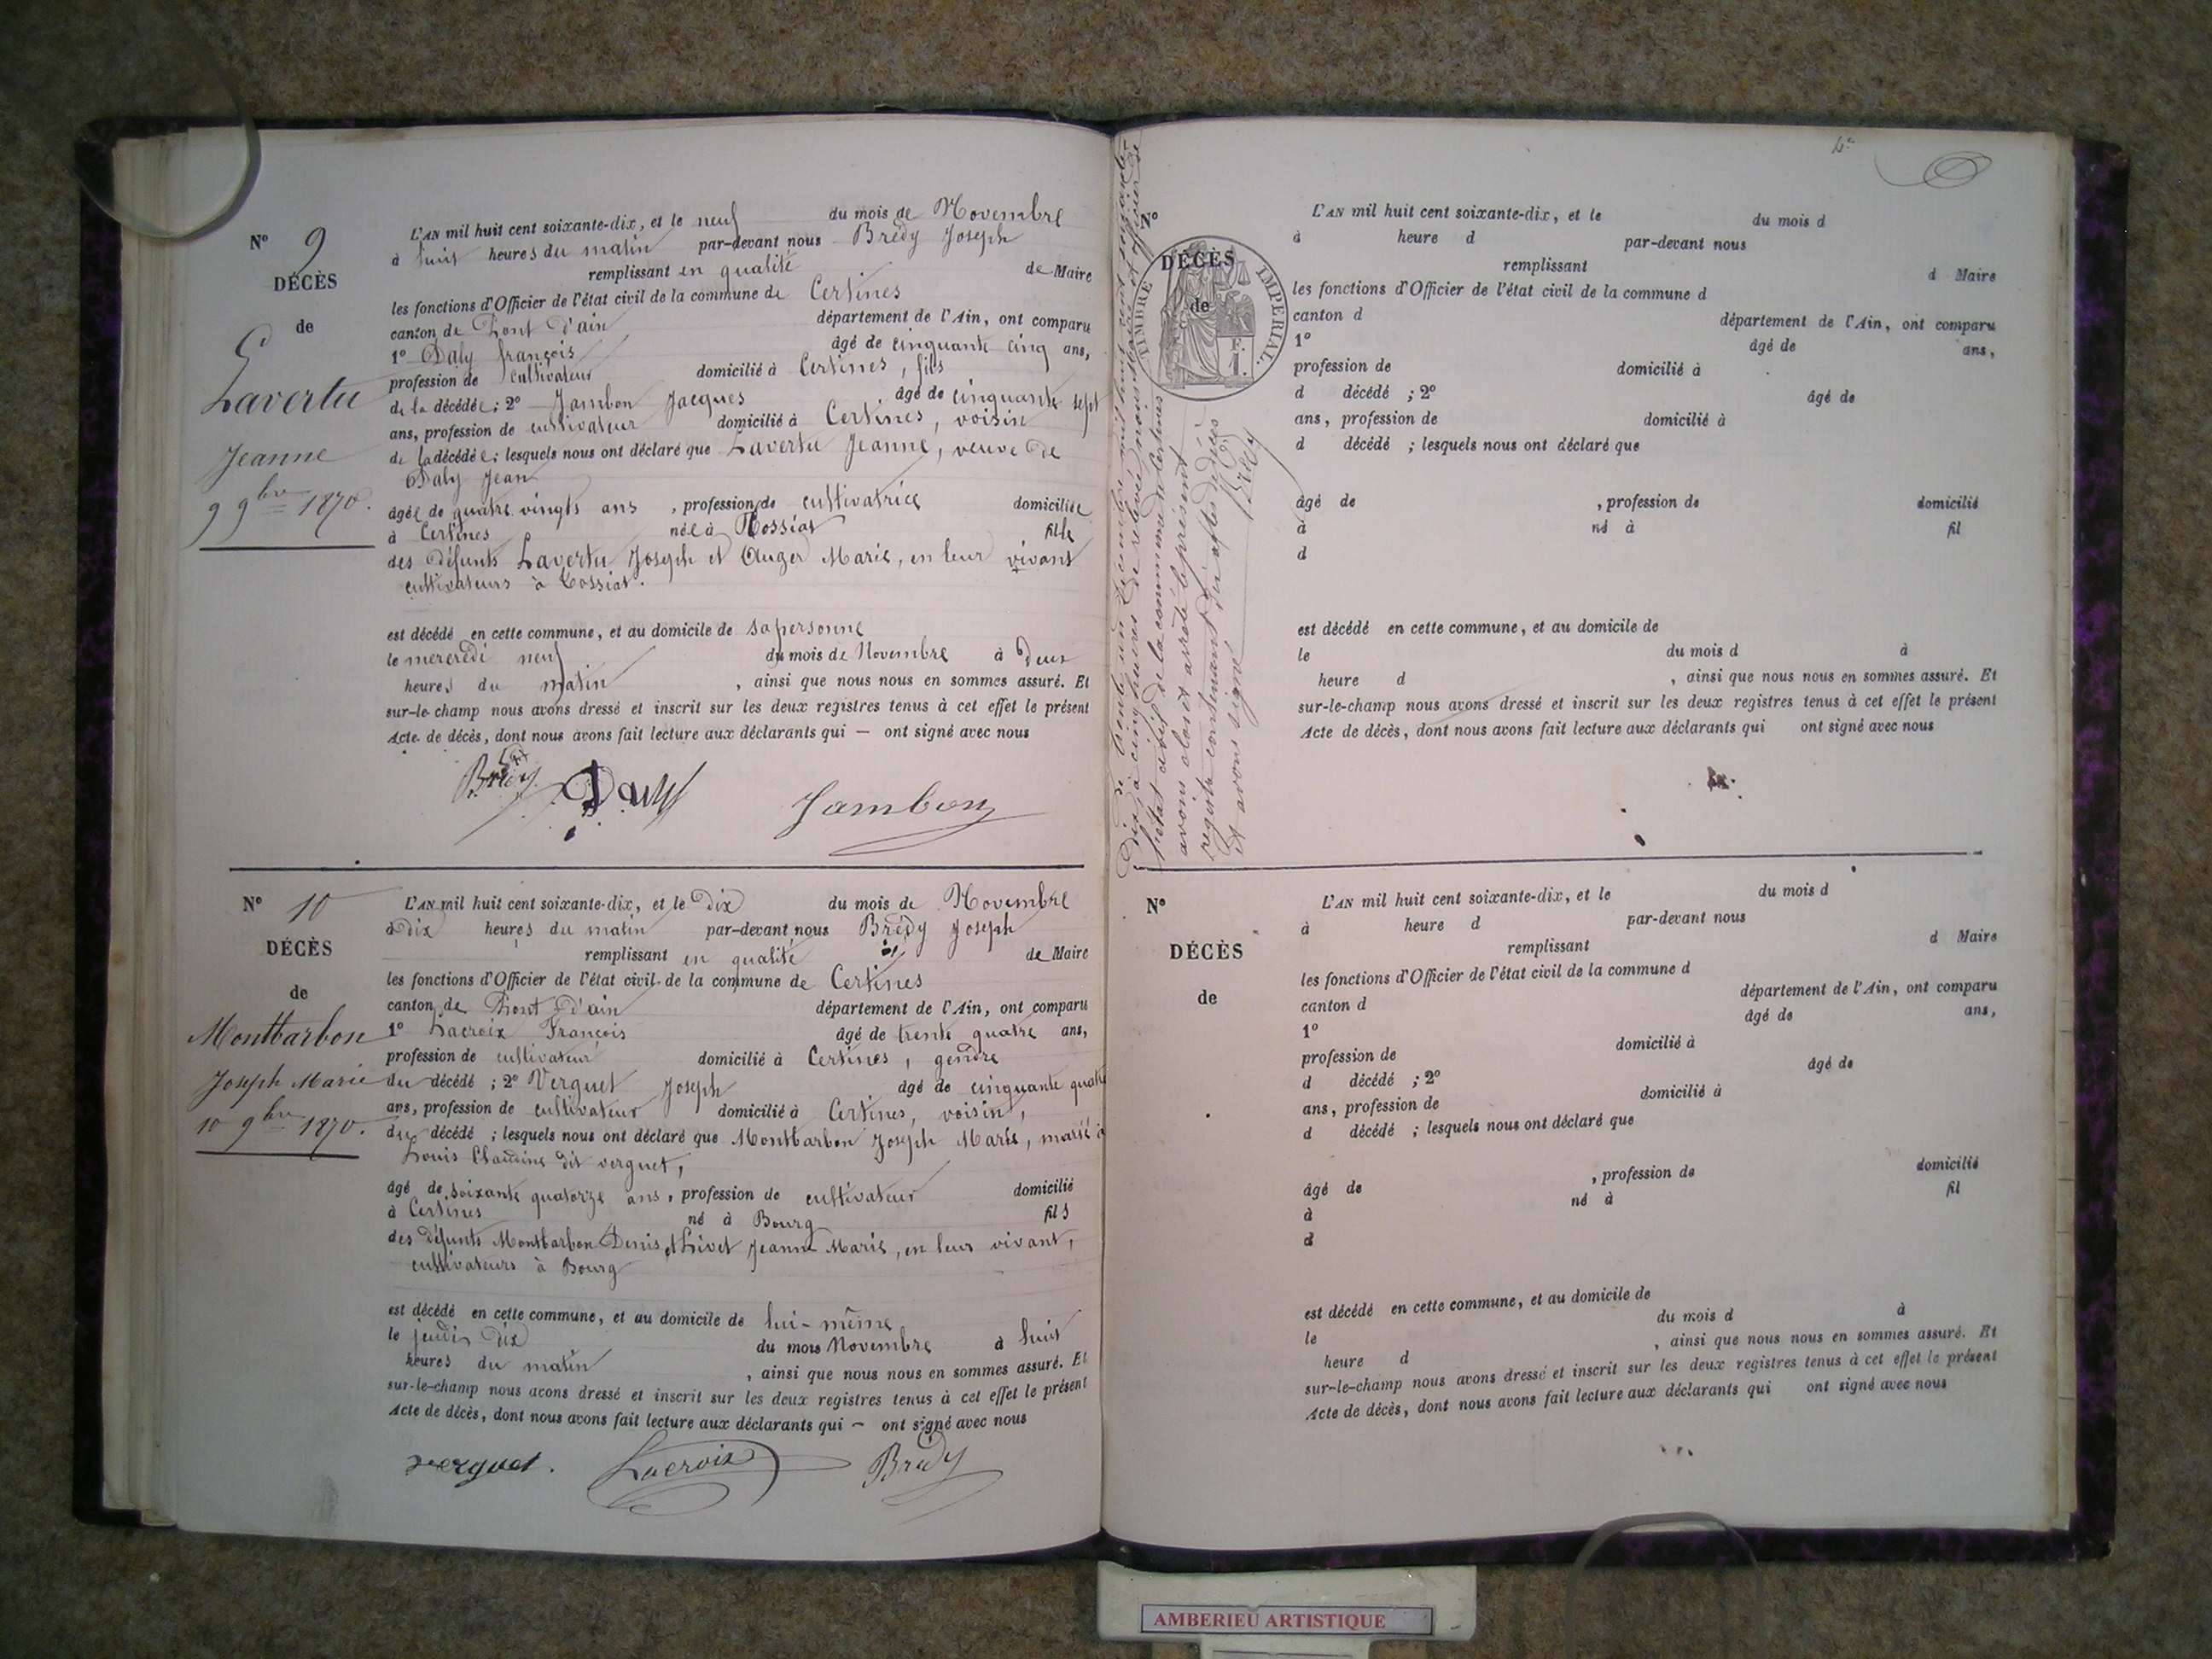 N° 9
DÉCÈS
de
Lavertu
Jeanne
9 9bre 1870.
L'AN mil huit cent soixante-dix, et le neuf du mois de Novembre
à huit heures du matin par-devant nous Brédy Joseph
remplissant en qualité de Maire
les fonctions d'Officier de l'état civil de la commune de Certines
canton de Pont d'ain département de l'Ain, ont comparu
1° Daly françois âgé de cinquante cinq ans,
profession de cultivateur domicilié à Certines, fils
de la décédée ; 2° Jambon Jacques âgé de cinquante sept
ans, profession de cultivateur domicilié à Certines, voisin
de la décédée ; lesquels nous ont déclaré que Lavertu Jeanne, veuve de
Daly Jean
âgée de quatre vingts ans , profession de cultivatrice domiciliée
à Certines née à Tossiat fille
des défunts Lavertu Joseph et Auger Marie, en leur vivant
cultivateurs à Tossiat.
est décédé en cette commune, et au domicile de sa personne
le mercredi neuf du mois de Novembre à deux
heures du matin , ainsi que nous nous en sommes assuré. Et
sur-le-champ nous avons dressé et inscrit sur les deux registres tenus à cet effet le présent
Acte de décès, dont nous avons fait lecture aux déclarants qui — ont signé avec nous
Brédy Daly Jambon
N° 10
DÉCÈS
de
Montbarbon
Joseph Marie
10 9bre 1870.
L'AN mil huit cent soixante-dix, et le dix du mois de Novembre
à Dix heures du matin par-devant nous Brédy Joseph
remplissant en qualité de Maire
les fonctions d'Officier de l'état civil de la commune de Certines
canton de Pont D'ain département de l'Ain, ont comparu
1° Lacroix François âgé de trente quatre ans,
profession de cultivateur domicilié à Certines, gendre
du décédé ; 2° Verguet Joseph âgé de cinquante quatre
ans, profession de cultivateur domicilié à Certines, voisin,
du décédé ; lesquels nous ont déclaré que Montbarbon Joseph Marie, marié à
Louis Claudine dit verguet,
âgé de soixante quatorze ans, profession de cultivateur domicilié
à Certines né à Bourg fils
des défunts Montbarbon Denis et Livet Jeanne Marie, en leur vivant,
cultivateurs à Bourg
est décédé en cette commune, et au domicile de lui-même
le jeudi dix du mois Novembre à huit
heures du matin , ainsi que nous nous en sommes assuré. Et
sur-le-champ nous avons dressé et inscrit sur les deux registres tenus à cet effet le présent
Acte de décès, dont nous avons fait lecture aux déclarants qui — ont signé avec nous
verguet. Lacroix Brédy
N°
DÉCÈS
de
TIMBRE IMPÉRIAL.
F.
1.
de la commune de Certines
avons clos et arrêté le présent
registre contenant dix actes de décès
et avons signé Brédy
L'AN mil huit cent soixante-dix, et le du mois d
à heure d par-devant nous
remplissant d Maire
les fonctions d'Officier de l'état civil de la commune d
canton d département de l'Ain, ont comparu
1° âgé de ans,
profession de domicilié à
d décédé ; 2° âgé de
ans, profession de domicilié à
d décédé ; lesquels nous ont déclaré que
âgé de , profession de domicilié
à né à fil
d
est décédé en cette commune, et au domicile de
le du mois d à
heure d , ainsi que nous nous en sommes assuré. Et
sur-le-champ nous avons dressé et inscrit sur les deux registres tenus à cet effet le présent
Acte de décès, dont nous avons fait lecture aux déclarants qui ont signé avec nous
N°
DÉCÈS
de
L'AN mil huit cent soixante-dix, et le du mois d
à heure d par-devant nous
remplissant d Maire
les fonctions d'Officier de l'état civil de la commune d
canton d département de l'Ain, ont comparu
1° âgé de ans,
profession de domicilié à
d décédé ; 2° âgé de
ans, profession de domicilié à
d décédé ; lesquels nous ont déclaré que
âgé de , profession de domicilié
à né à fil
d
est décédé en cette commune, et au domicile de
le du mois d à
heure d , ainsi que nous nous en sommes assuré. Et
sur-le-champ nous avons dressé et inscrit sur les deux registres tenus à cet effet le présent
Acte de décès, dont nous avons fait lecture aux déclarants qui ont signé avec nous
AMBERIEU ARTISTIQUE